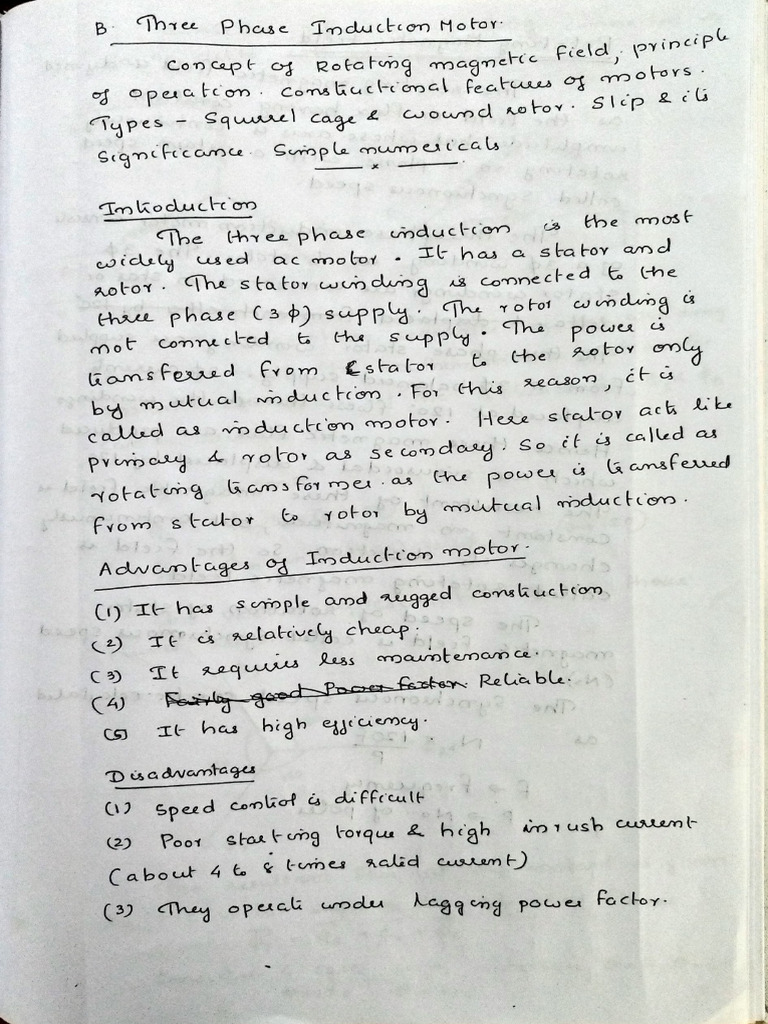 B. Three Phase Induction Motor.
Concept of Rotating magnetic field, principle
of operation. Constructional features of motors.
Types - Squirrel cage & wound rotor. Slip & its
significance. Simple numericals.
Introduction
The three phase induction is the most
widely used ac motor. It has a stator and
rotor. The stator winding is connected to the
three phase (3 φ) supply. The rotor winding is
not connected to the supply. The power is
transferred from stator to the rotor only
by mutual induction. For this reason, it is
called as induction motor. Here stator acts like
primary & rotor as secondary. So it is called as
rotating transformer as the power is transferred
from stator to rotor by mutual induction.
Advantages of Induction motor.
(1) It has simple and rugged construction
(2) It is relatively cheap.
(3) It requires less maintenance.
(4) Fairly good Power factor. Reliable.
(5) It has high efficiency.
Disadvantages
(1) Speed control is difficult
(2) Poor starting torque & high inrush current
(about 4 to 8 times rated current)
(3) They operate under lagging power factor.